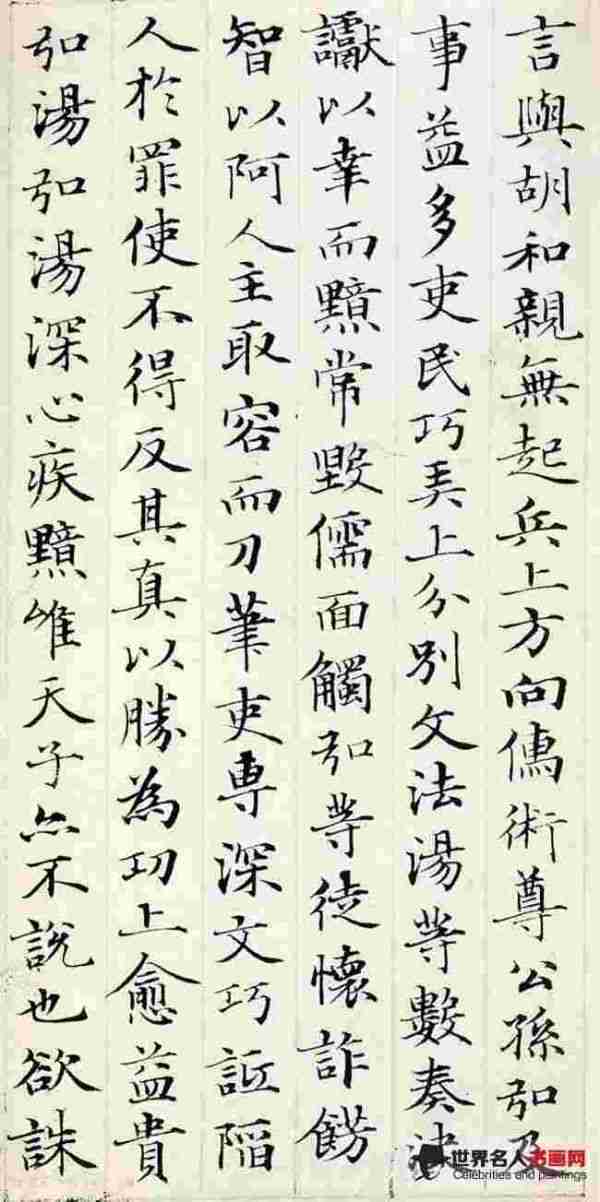 言與胡和親無起兵上方向儒術尊公孫弘及
事益多吏民巧弄上分別文法湯等數奏決
讞以幸而黯常毀儒面觸弘等徒懷詐飾
智以阿人主取容而刀筆吏專深文巧詆陷
人於罪使不得反其真以勝為功上愈益貴
弘湯弘湯深心疾黯唯天子亦不說也欲誅
世界名人书画网
Celebrities and paintings